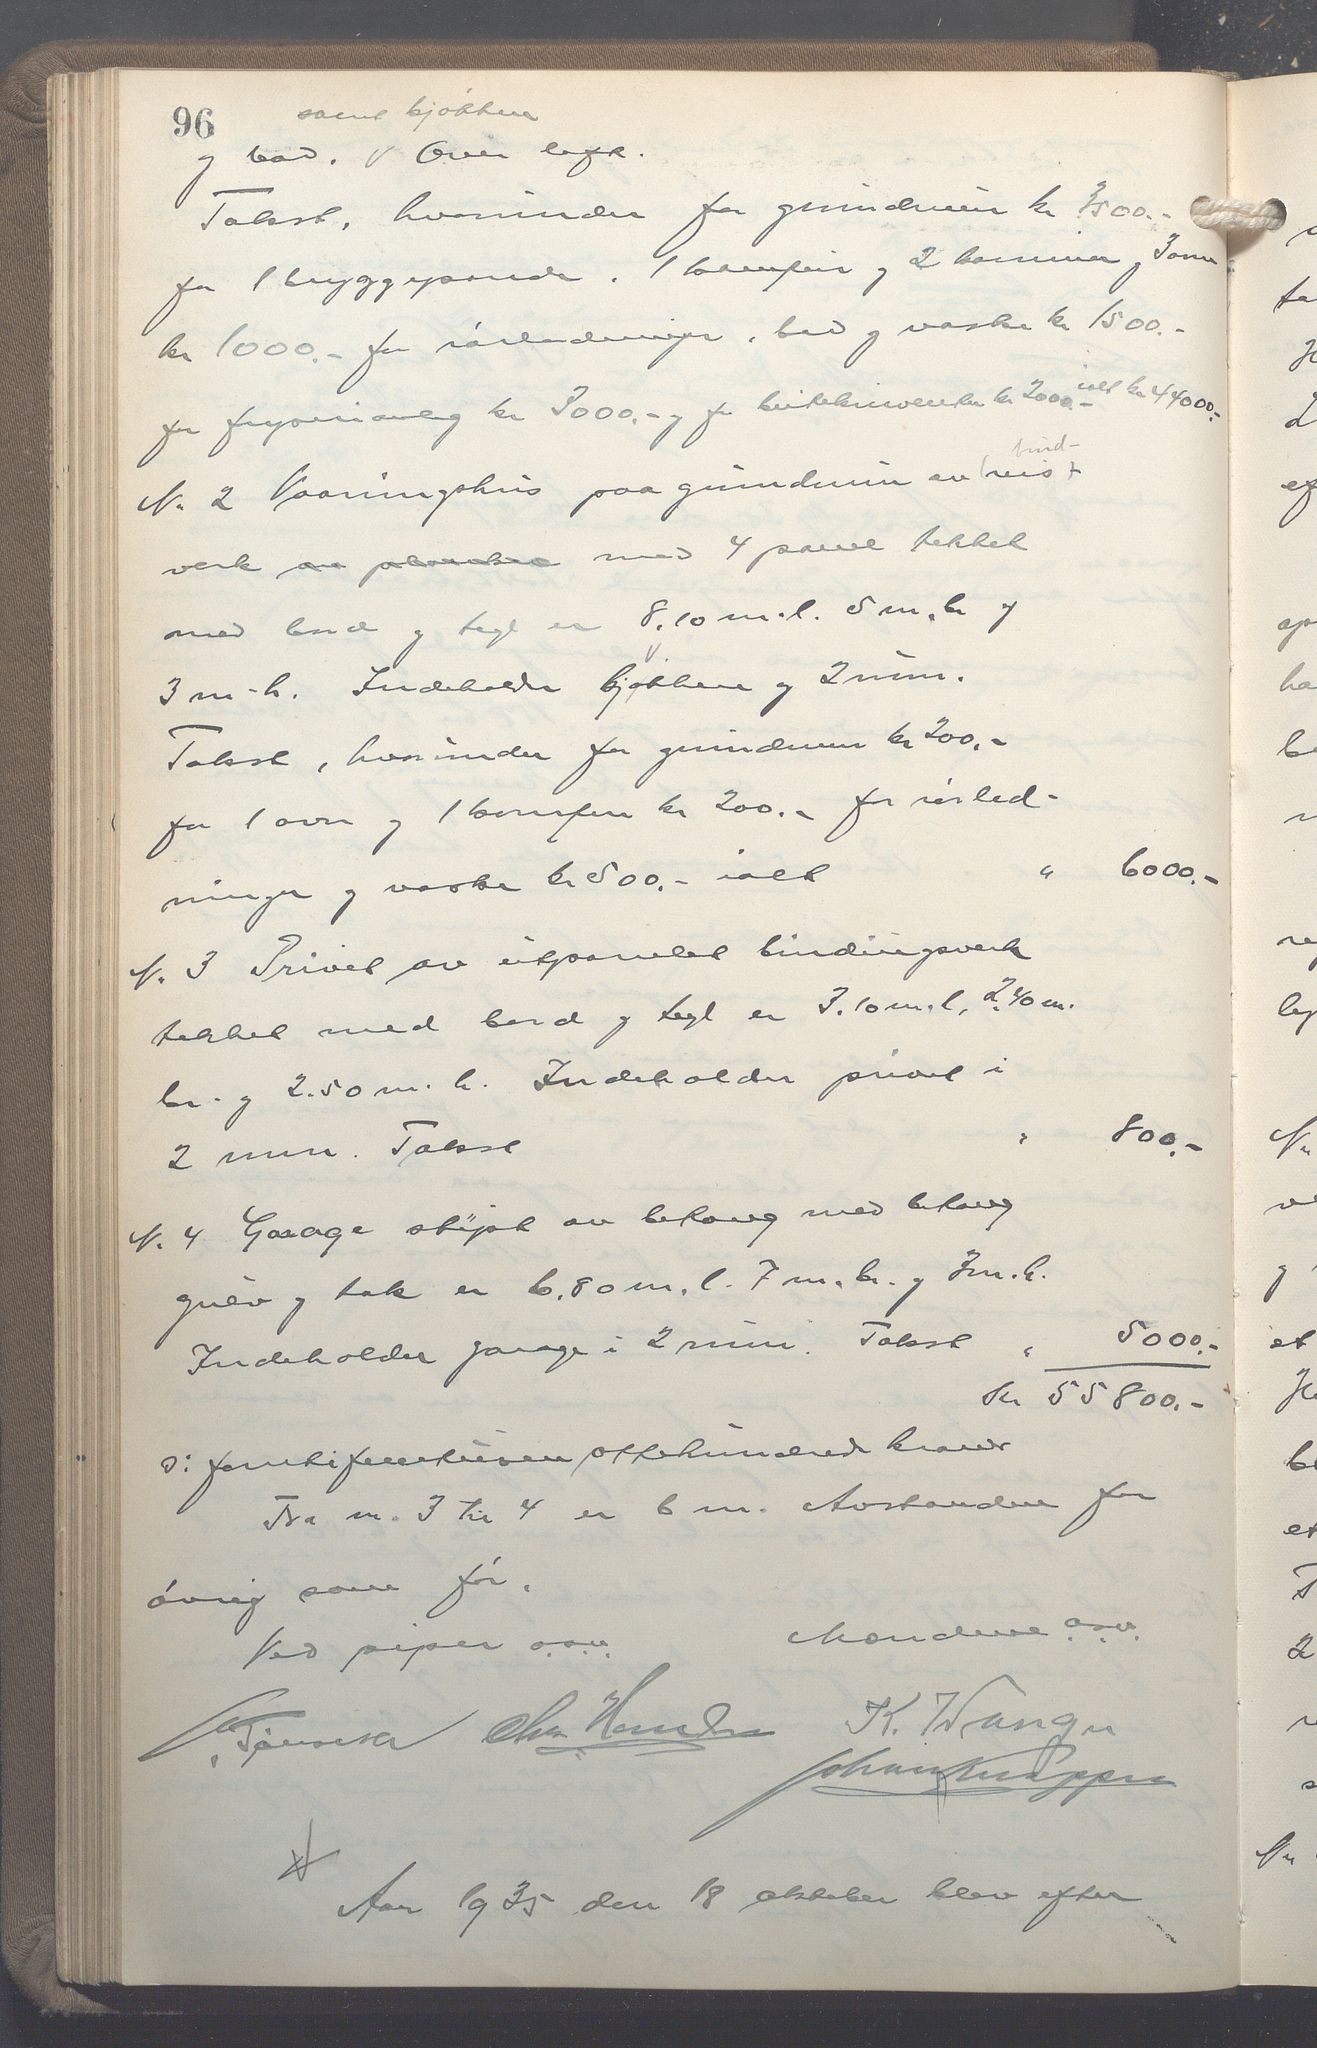 96
samt kjøkken
og bad. Over loft.
Takst, hvorunder for grundmur kr 3500.-
for 1 bryggepande, 1 komfyr og 2 kaminer og 3 ovner
kr 1000.- for rørledninger, bad og vaske kr 1500.-
for fryserianlæg kr 3000.- og for butikinventar kr 2000.- ialt kr 44000.-
bind-
N. 2 Vaaningshus paa grundmur av (reis)
verk av planker med 4 panel tekket
med bord og tegl er 8.10 m.l. 5 m. br og
3 m.h. Indeholder kjøkken og 2 rum.
Takst, hvorunder for grundmur kr 200.-
for 1 ovn og 1 komfyr kr 200.- for rørled-
ninger og vaske kr 500.- ialt " 6000.-
N. 3 Privet av utpanelet bindingsverk
tekket med bord og tegl er 3.10 m.l. 2.40 m.
br. og 2.50 m.h. Indeholder privet i
2 rum. Takst " 800.-
N. 4 Garage støpt av betong med betong
gulv og tak er 6.80 m.l. 7 m. br. og 3 m.h.
Indeholder garage i 2 rum. Takst " 5000.-
Kr 55800.-
ɔ: femtifemtusen ottehundrede kroner
Fra nr. 3 til 4 er 6 m. Avstandene for
øvrig som før.
Ved piper o.s.v. Mændene o.s.v.
K. Wange
Johan Knappen
Aar 1935 den 18 oktober blev efter